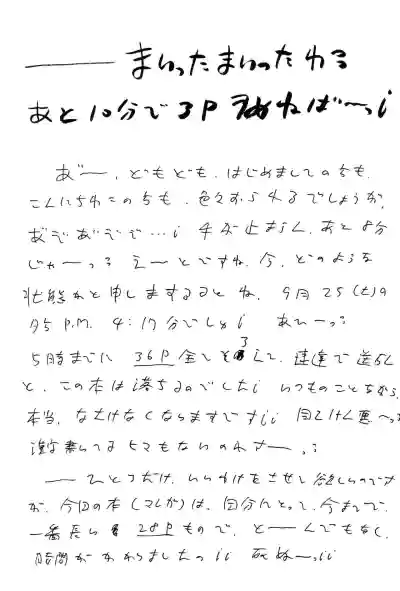 ── まいったまいったわる
あと10分で3P うめねば～っ!
あ゛ー、どもども、はじめましての方も、
こんにちわの方も、色々おられるでしょうが、
おぞおぞで…! 手が止まらん、あと8分
じゃーっ え～とですね、今、どのような
状態かと申しまするとね、9月25(土)の
P.M. 4:17分でしょ! あひーっ
5時までに 36P 全てそろえて、速達で送らん
と、この本は落ちるのでした! いつものことながら、
本当、なさけなくなりますです!!
漢字書いてる
── ひとつだけ、いいわけをさせて欲しいのです
が、今回の本(マンガ)は、自分にとって、今までで、
一番長い 28P もので、と──んでもなく、
時間がかかりましたっ!! 死ぬ～っ!!